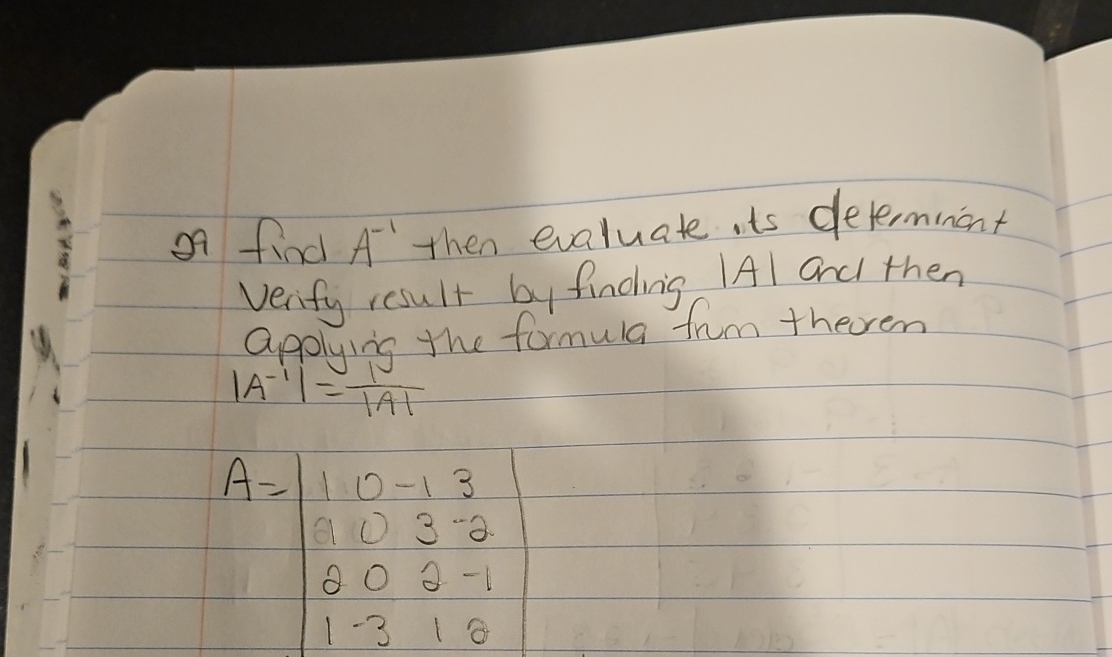 29 find A⁻¹ then evaluate its determinant
Verify result by finding |A| and then
applying the formula from theorem
|A⁻¹| = 1/|A|
A = | 1 0 -1 3 |
1 0 3 -2
2 0 2 -1
1 -3 1 2